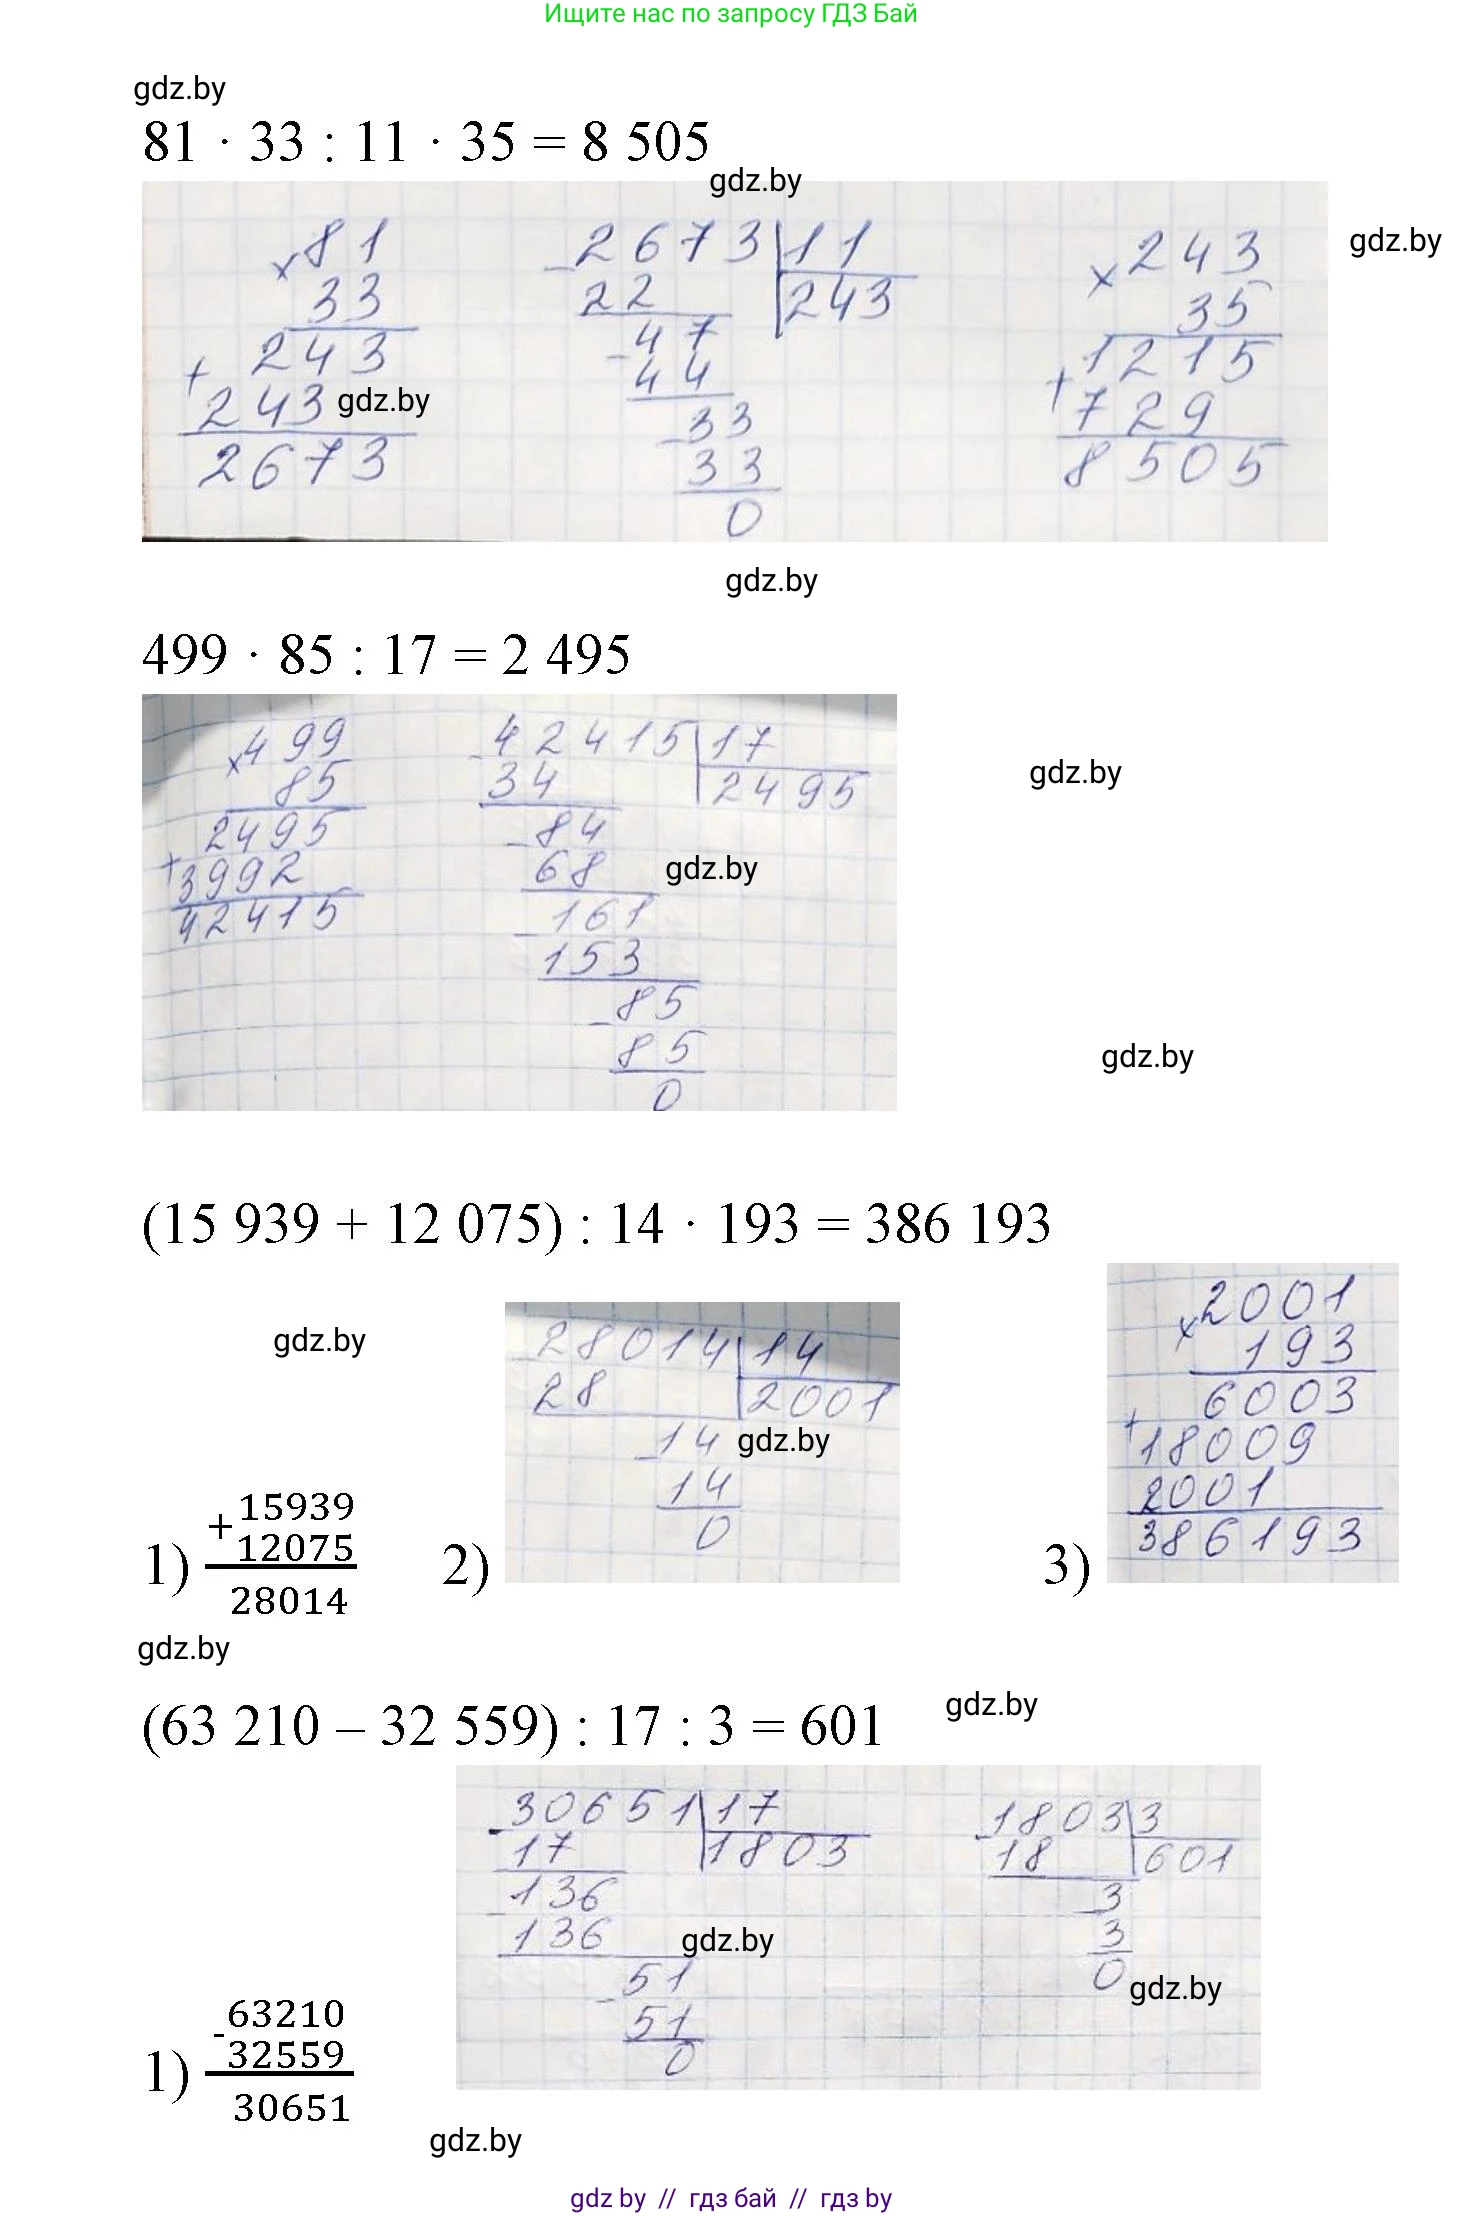 Ищите нас по запросу ГДЗ Бай
gdz.by
81 · 33 : 11 · 35 = 8 505
gdz.by
gdz.by
× 81
33
243
+ 243
2673
gdz.by
- 2673 | 11
22 | 243
- 47
44
- 33
33
0
× 243
35
1215
+ 729
8505
gdz.by
499 · 85 : 17 = 2 495
× 499
85
2495
+ 3992
42415
- 42415 | 17
34 | 2495
- 84
68
- 161
153
- 85
85
0
gdz.by
gdz.by
gdz.by
(15 939 + 12 075) : 14 · 193 = 386 193
gdz.by
1)
+ 15939
12075
28014
2)
- 28014 | 14
28 | 2001
- 14
14
0
gdz.by
3)
× 2001
193
6003
+ 18009
2001
386193
gdz.by
(63 210 – 32 559) : 17 : 3 = 601
gdz.by
1)
- 63210
32559
30651
- 30651 | 17
17 | 1803
- 136
136
- 51
51
0
gdz.by
- 1803 | 3
18 | 601
- 3
3
0
gdz.by
gdz.by
gdz by // гдз бай // гдз by